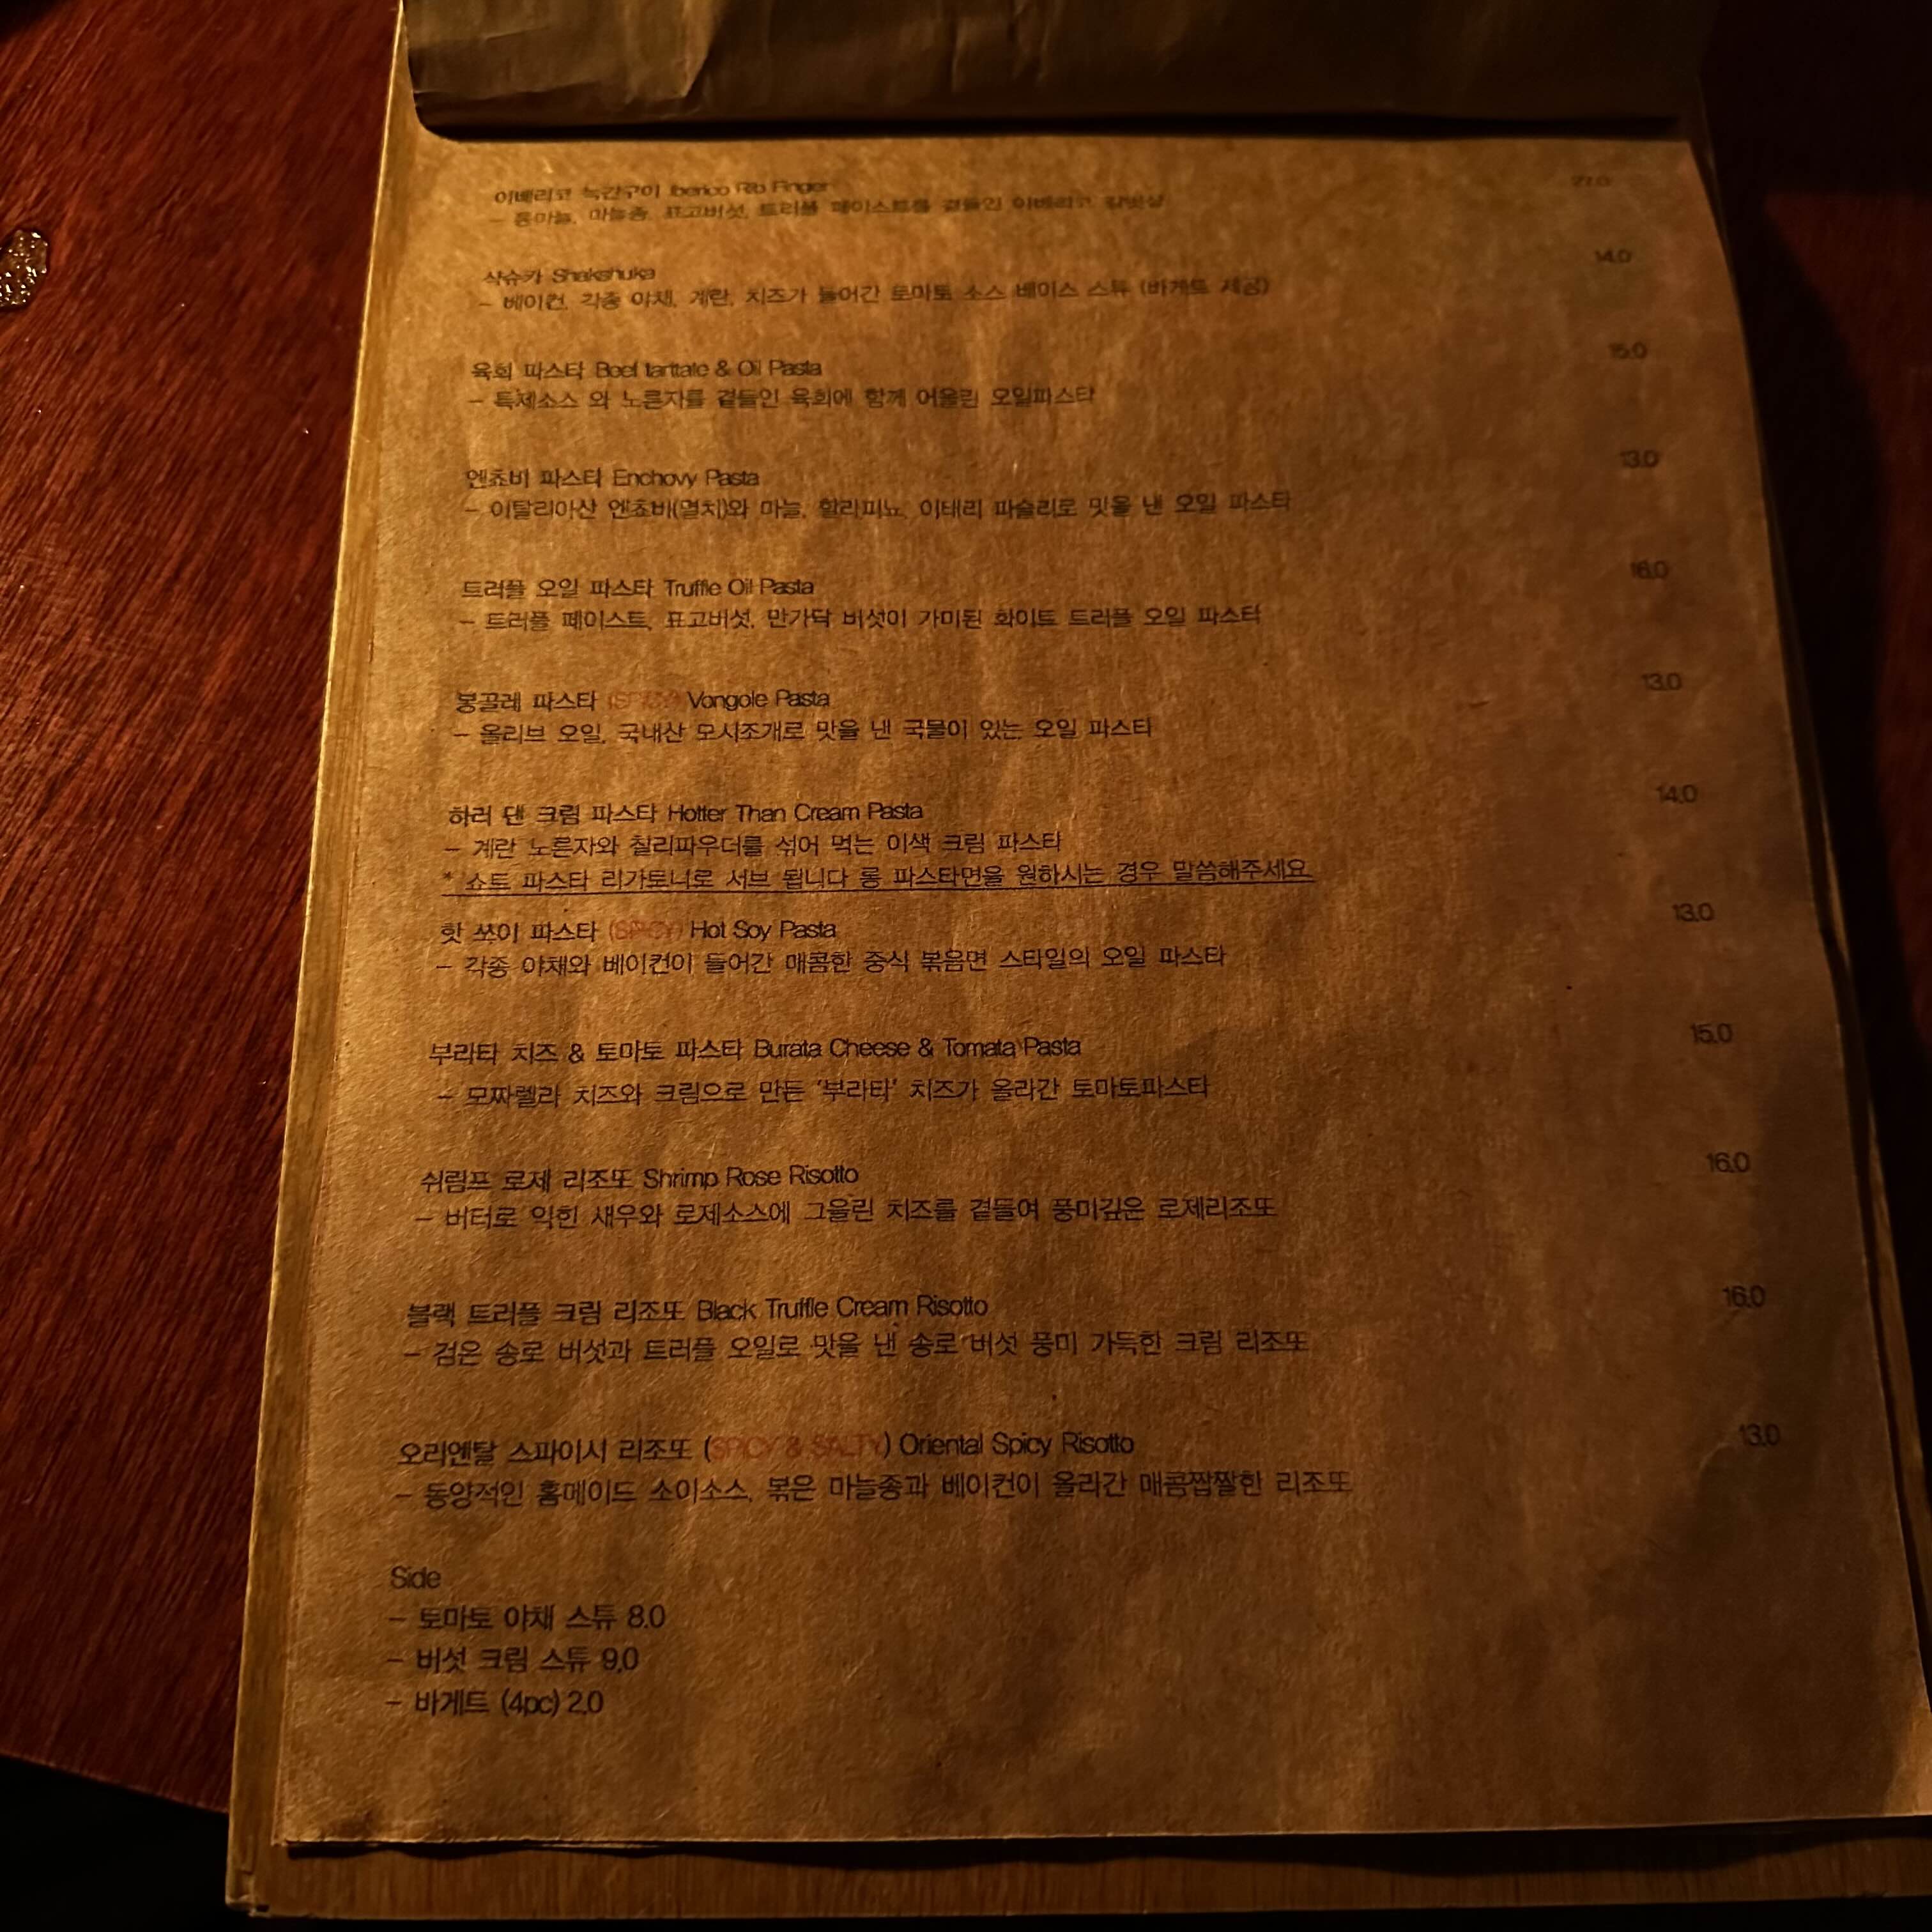 이베리코 늑간구이 Iberico Rib Finger 27.0
- 통마늘, 마늘종, 표고버섯, 트러플 페이스트를 곁들인 이베리코 갈빗살
샥슈카 Shakshuka 14.0
- 베이컨, 각종 야채, 계란, 치즈가 들어간 토마토 소스 베이스 스튜 (바게트 제공)
육회 파스타 Beef tarttate & Oil Pasta 15.0
- 특제소스 와 노른자를 곁들인 육회에 함께 어울린 오일파스타
엔쵸비 파스타 Enchovy Pasta 13.0
- 이탈리아산 엔쵸비(멸치)와 마늘, 할라피뇨, 이태리 파슬리로 맛을 낸 오일 파스타
트러플 오일 파스타 Truffle Oil Pasta 16.0
- 트러플 페이스트, 표고버섯, 만가닥 버섯이 가미된 화이트 트러플 오일 파스타
봉골레 파스타 (SPICY) Vongole Pasta 13.0
- 올리브 오일, 국내산 모시조개로 맛을 낸 국물이 있는 오일 파스타
하러 댄 크림 파스타 Hotter Than Cream Pasta 14.0
- 계란 노른자와 칠리파우더를 섞어 먹는 이색 크림 파스타
* 쇼트 파스타 리가토니로 서브 됩니다 롱 파스타면을 원하시는 경우 말씀해주세요.
핫 쏘이 파스타 (SPICY) Hot Soy Pasta 13.0
- 각종 야채와 베이컨이 들어간 매콤한 중식 볶음면 스타일의 오일 파스타
부라타 치즈 & 토마토 파스타 Burata Cheese & Tomata Pasta 15.0
- 모짜렐라 치즈와 크림으로 만든 '부라타' 치즈가 올라간 토마토파스타
쉬림프 로제 리조또 Shrimp Rose Risotto 16.0
- 버터로 익힌 새우와 로제소스에 그을린 치즈를 곁들여 풍미깊은 로제리조또
블랙 트러플 크림 리조또 Black Truffle Cream Risotto 16.0
- 검은 송로 버섯과 트러플 오일로 맛을 낸 송로 버섯 풍미 가득한 크림 리조또
오리엔탈 스파이시 리조또 (SPICY & SALTY) Oriental Spicy Risotto 13.0
- 동양적인 홈메이드 소이소스, 볶은 마늘종과 베이컨이 올라간 매콤짭짤한 리조또
Side
- 토마토 야채 스튜 8.0
- 버섯 크림 스튜 9.0
- 바게트 (4pc) 2.0